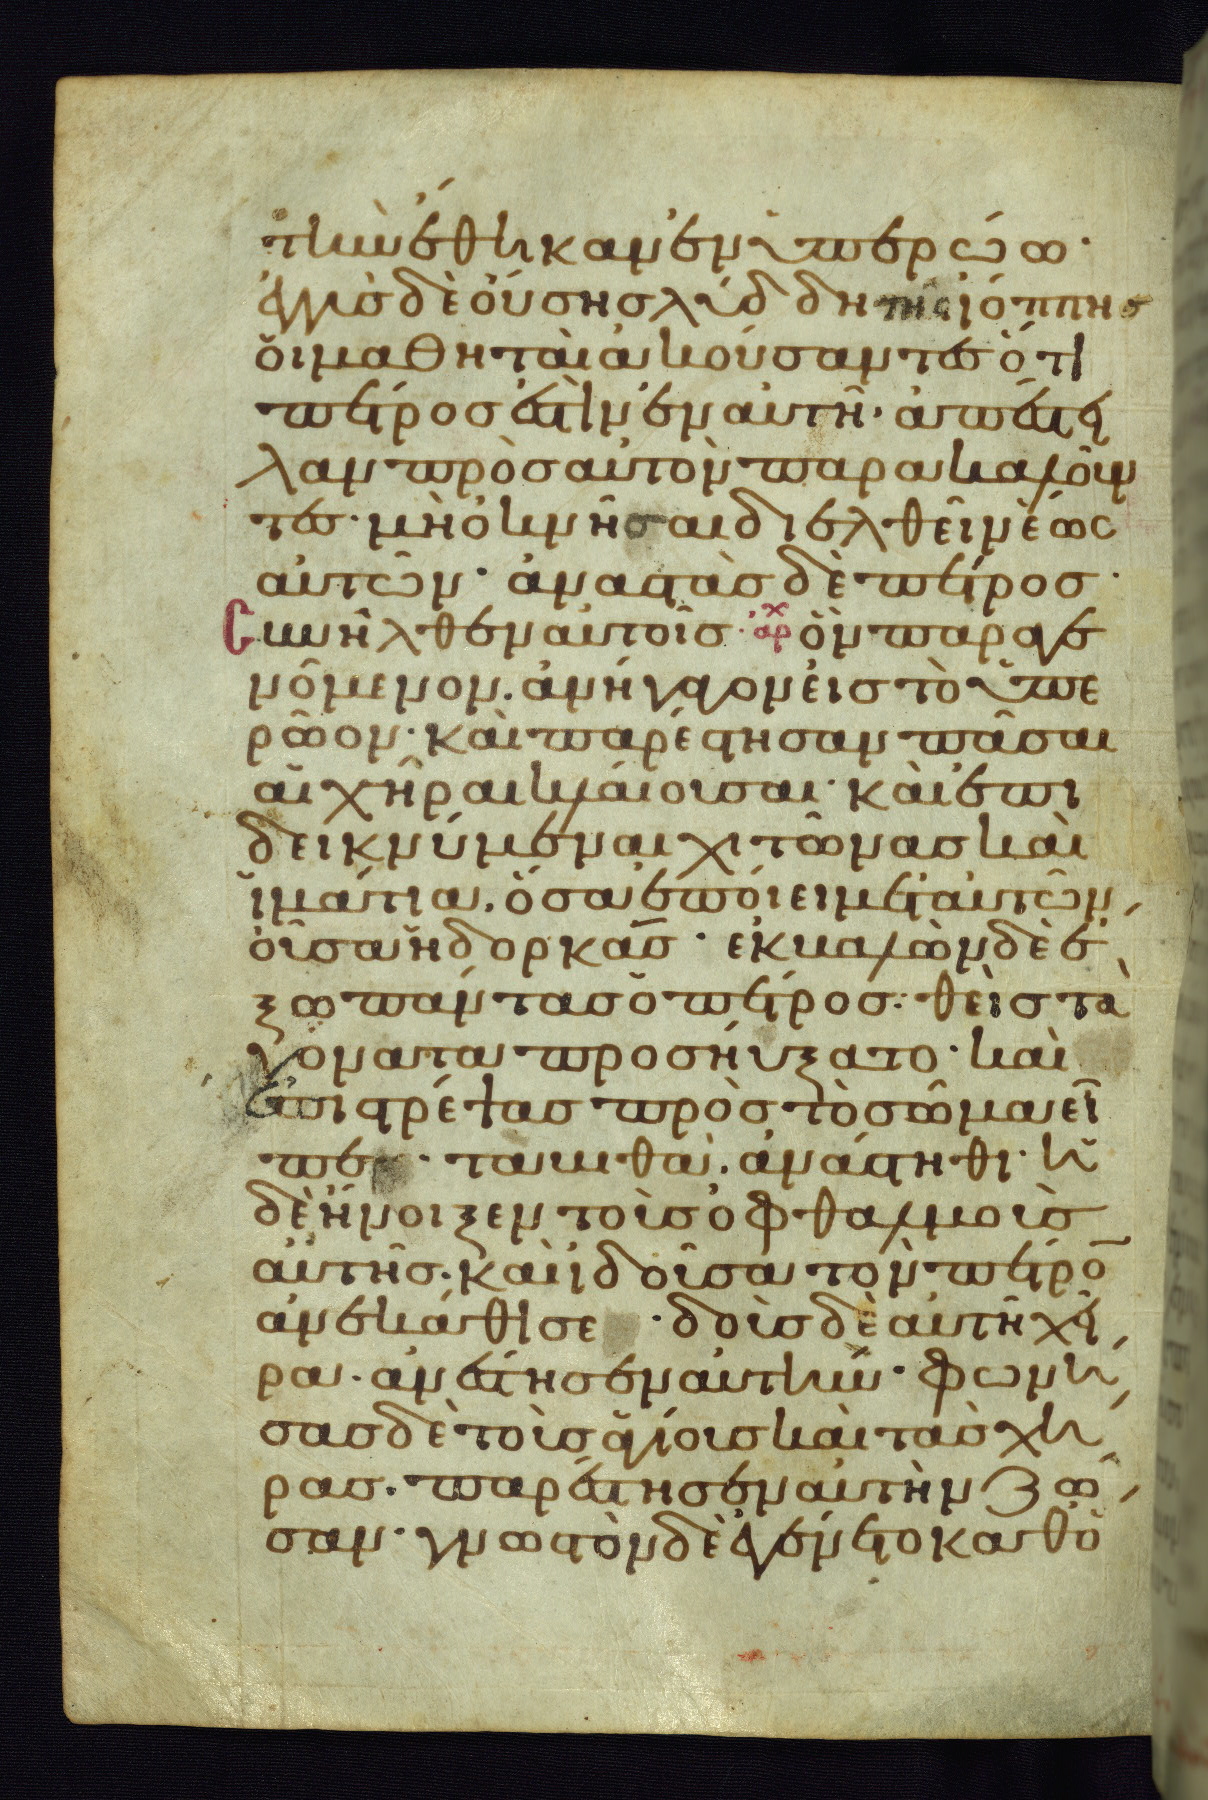 τὴν ἔθηκαν ἐν ὑπερώω·
ἐγγὺς δὲ οὔσης λύδδη τῆς ἰόππης
ὅι μαθηταὶ ἀκούσαντες ὅτι
πέτρος ἐστὶν ἐν αὐτῆ· ἀπέστει
λαν πρὸς αὐτὸν παρακαλοῦν
τες· μὴ ὀκνῆσαι διελθεῖν ἕως
αὐτῶν· ἀναστὰς δὲ πέτρος·
συνῆλθεν αὐτοῖς· αρχ ὃν παραγε
νόμενον· ἀνήγαγον εἰς τὸ ὑπε
ρῶον· καὶ παρέστησαν πᾶσαι
αἱ χῆραι κλαίουσαι· καὶ ἐπι
δεικνύμεναι χιτῶνας καὶ
ἱμάτια· ὅσα ἐποίει μετ αὐτῶν
οὖσα ἡ δορκάς· εκκαλὼν δὲ ἔ
ξω πάντας ὁ πέτρος· θεὶς τὰ
γόνατα προσήυξατο· καὶ
ἐπιστρέψας πρὸς τὸ σῶμα εῖ
πεν· ταιθα· ἀνάστηθι· ἡ
δὲ ἤνοιξεν τοὺς ὀφθαλμοὺς
αὐτῆς· καὶ ἰδοῦσα τὸν πέτρο
ἀνεκάθισε· δοὺς δὲ αὐτῆ χεῖ
ρα· ἀνέστησεν αὐτὴν· φωνή
σας δὲ τοὺς ἁγίους καὶ τὰς χή
ρας· παρέστησεν αὐτὴν ζῶ
σαν· γνωστὸν δὲ ἐγένετο καθ ὅ